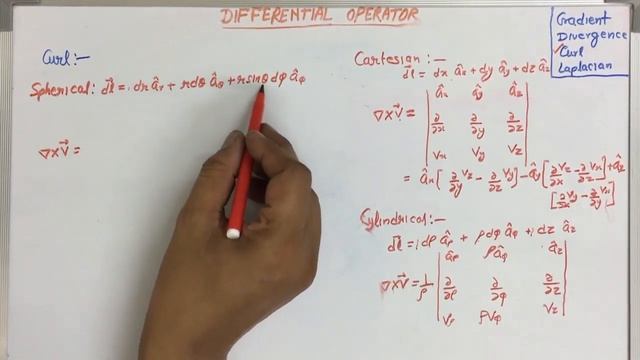 DIFFERENTIAL OPERATOR
Gradient
Divergence
✓Curl
Laplacian
Curl:-
Spherical: d𝑙⃗ = 1 dr âr + r dθ âθ + r sinθ dφ âφ
∇×V⃗ =
Cartesian:-
d𝑙⃗ = dx âx + dy ây + dz âz
âx ây âz
∇×V⃗ = ∂/∂x ∂/∂y ∂/∂z
Vx Vy Vz
= âx [∂Vz/∂y - ∂Vy/∂z] - ây [∂Vz/∂x - ∂Vx/∂z] + âz
[∂Vy/∂x - ∂Vx/∂y]
Cylindrical:-
d𝑙⃗ = 1 dρ âρ + ρ dφ âφ + 1 dz âz
âρ ρâφ âz
∇×V⃗ = 1/ρ ∂/∂ρ ∂/∂φ ∂/∂z
Vρ ρVφ Vz